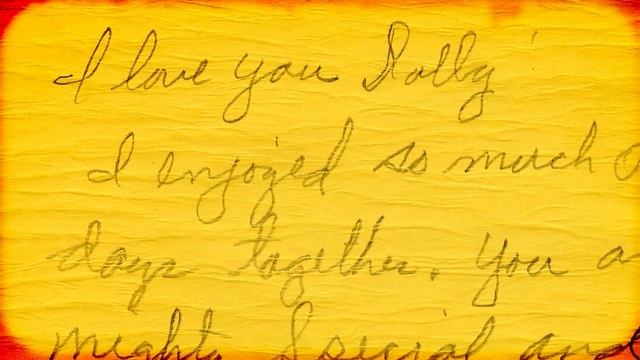 I love you Dolly
I enjoyed so much
days together. You
mighty special and